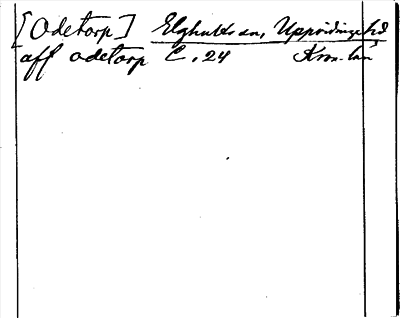 [Odetorp] Elghults sn, Uppvidinge hd
aff odetorp C. 24 Kron. län